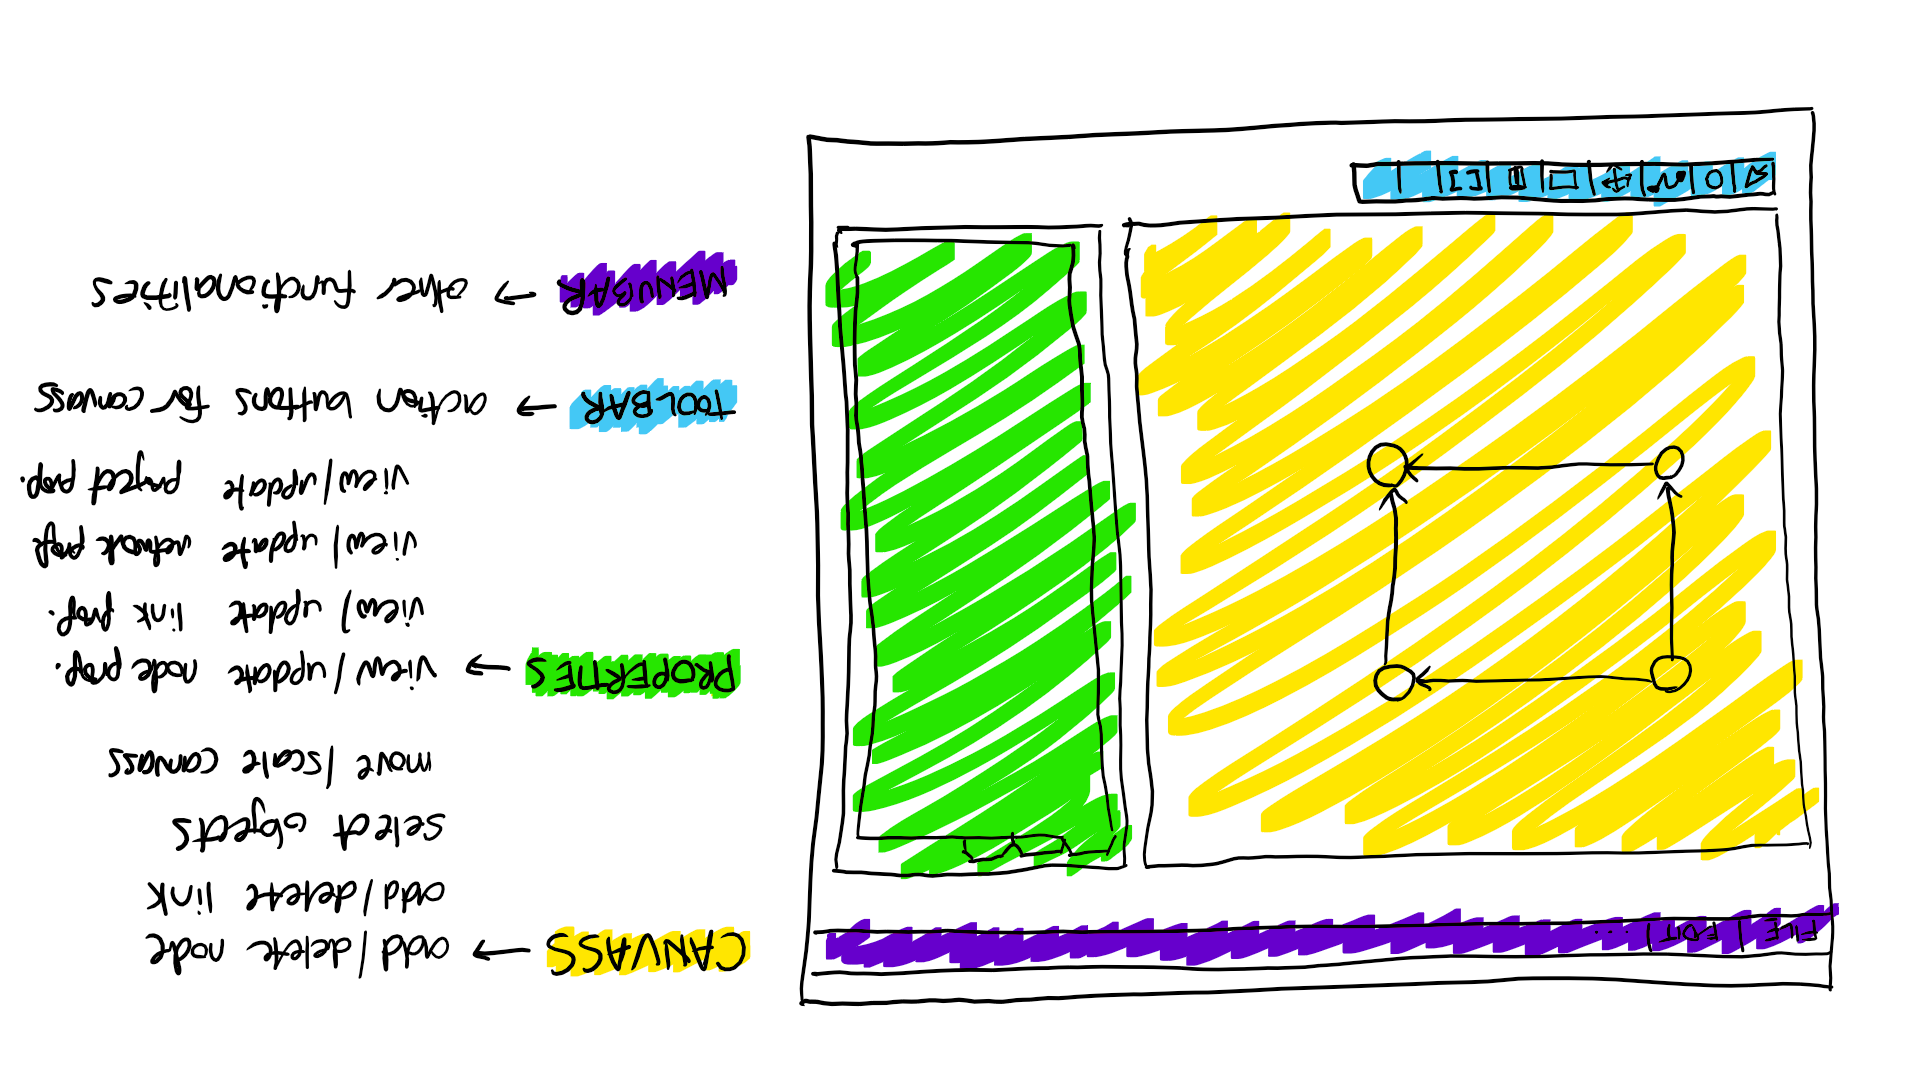 FILE | EDIT | ...
CANVASS → add / delete node
add / delete link
select objects
move / scale canvass
PROPERTIES → view / update node prop.
view / update link prop.
view / update network prop.
view / update project prop.
TOOLBAR → action buttons for canvass
MENUBAR → other functionalities